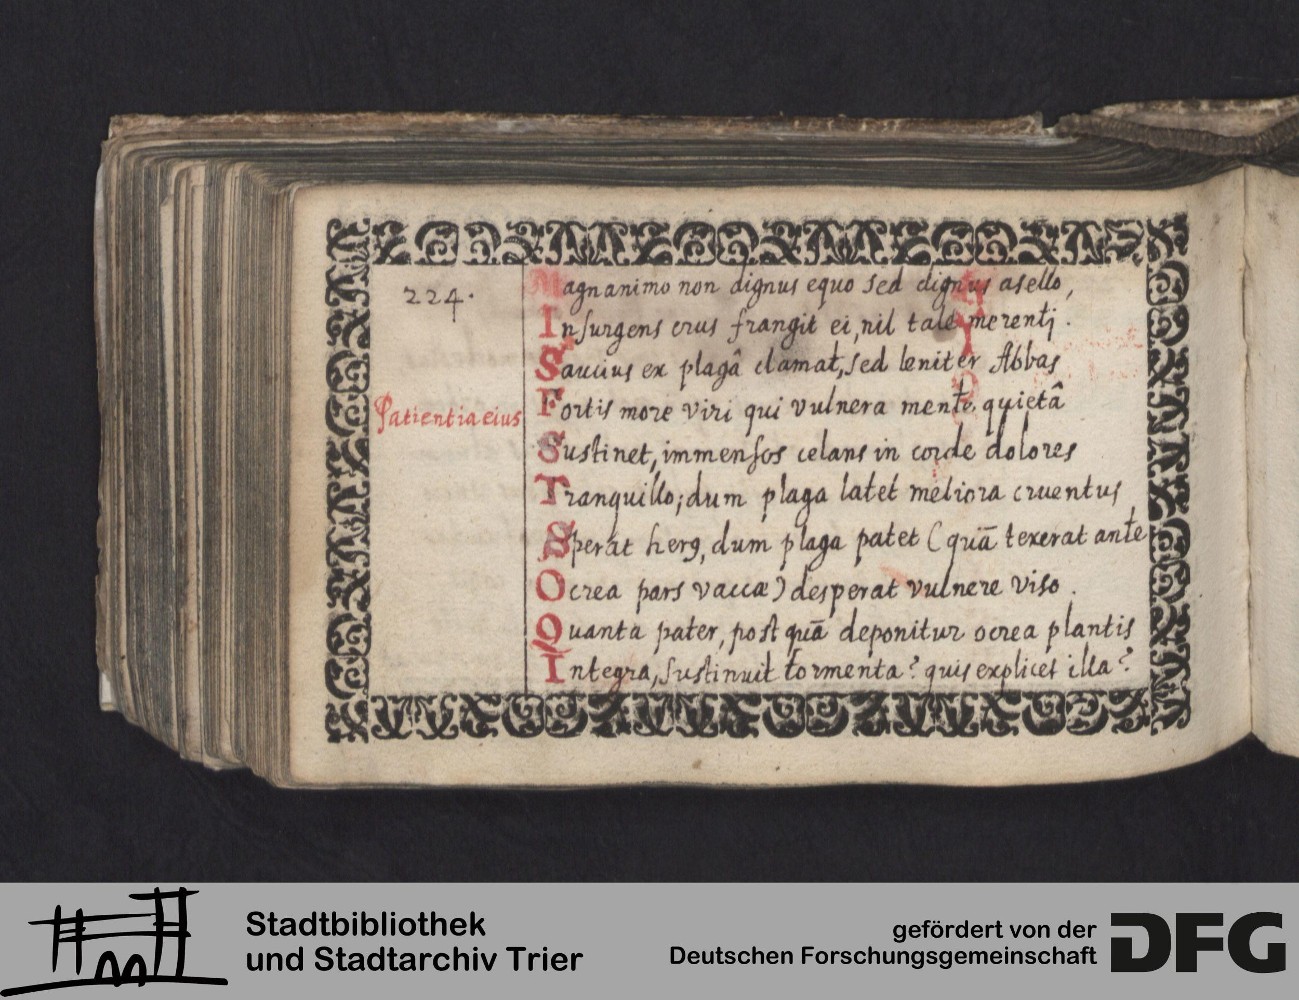 224.
Magnanimo non dignus equo sed dignus asello,
Insurgens crus frangit ei, nil tale merenti.
Saucius ex plagâ clamat, sed leniter Abbas
Patientia eius
Fortis more viri qui vulnera mente quietâ
Sustinet, immensos celans in corde dolores
Tranquillo; dum plaga latet meliora cruentus
Sperat herq, dum plaga patet (quā texerat ante
Ocrea pars vaccæ) desperat vulnere viso.
Quanta pater, post quā deponitur ocrea plantis
Integra, sustinuit tormenta? quis explicet illa?
Stadtbibliothek
und Stadtarchiv Trier
gefördert von der
Deutschen Forschungsgemeinschaft
DFG